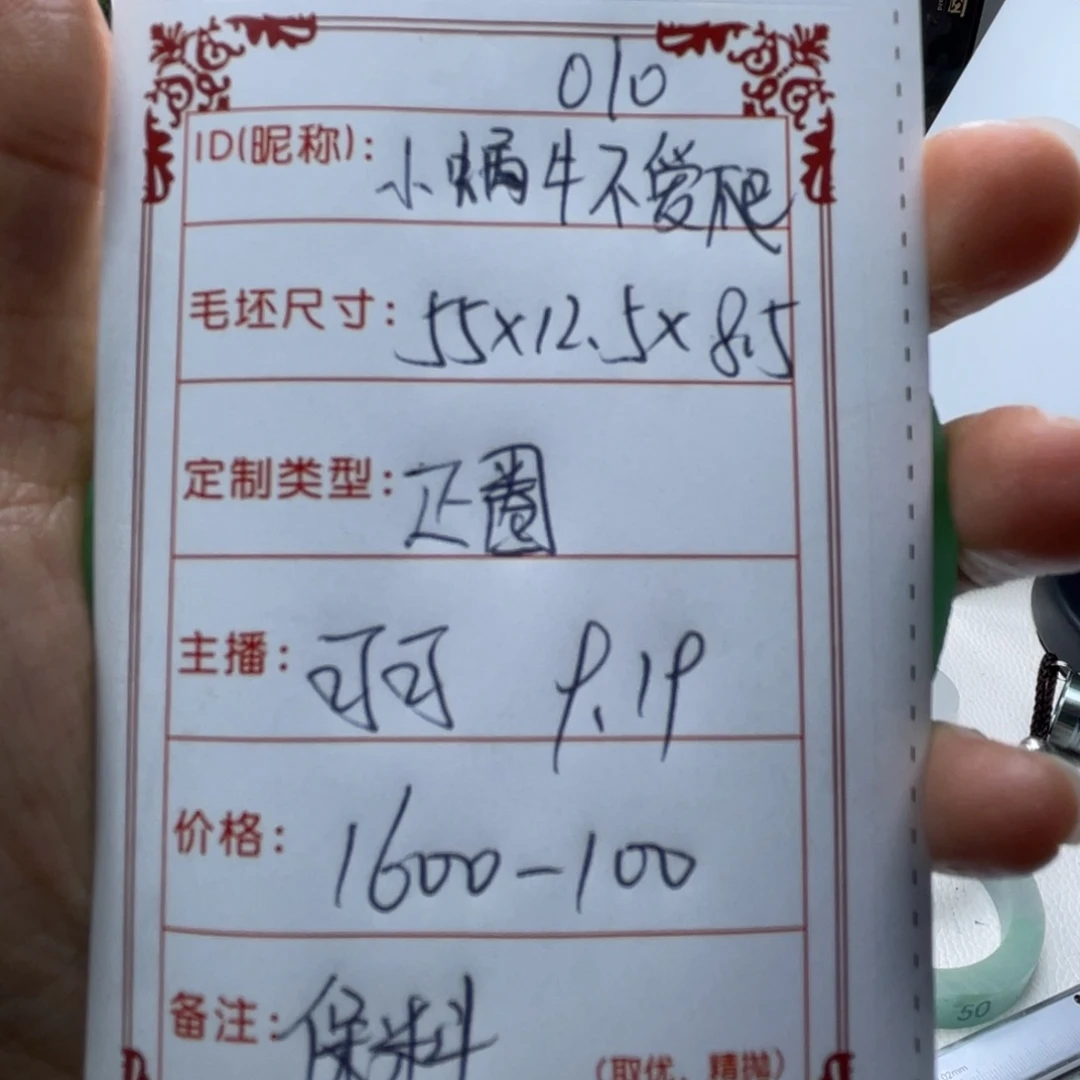 010
ID(昵称): 小蜗牛不爱爬
毛坯尺寸: 55×12.5×8.5
定制类型: 正圈
主播: 可可 9.19
价格: 1600-100
备注: 保料
(取优、精抛)
50
02mm